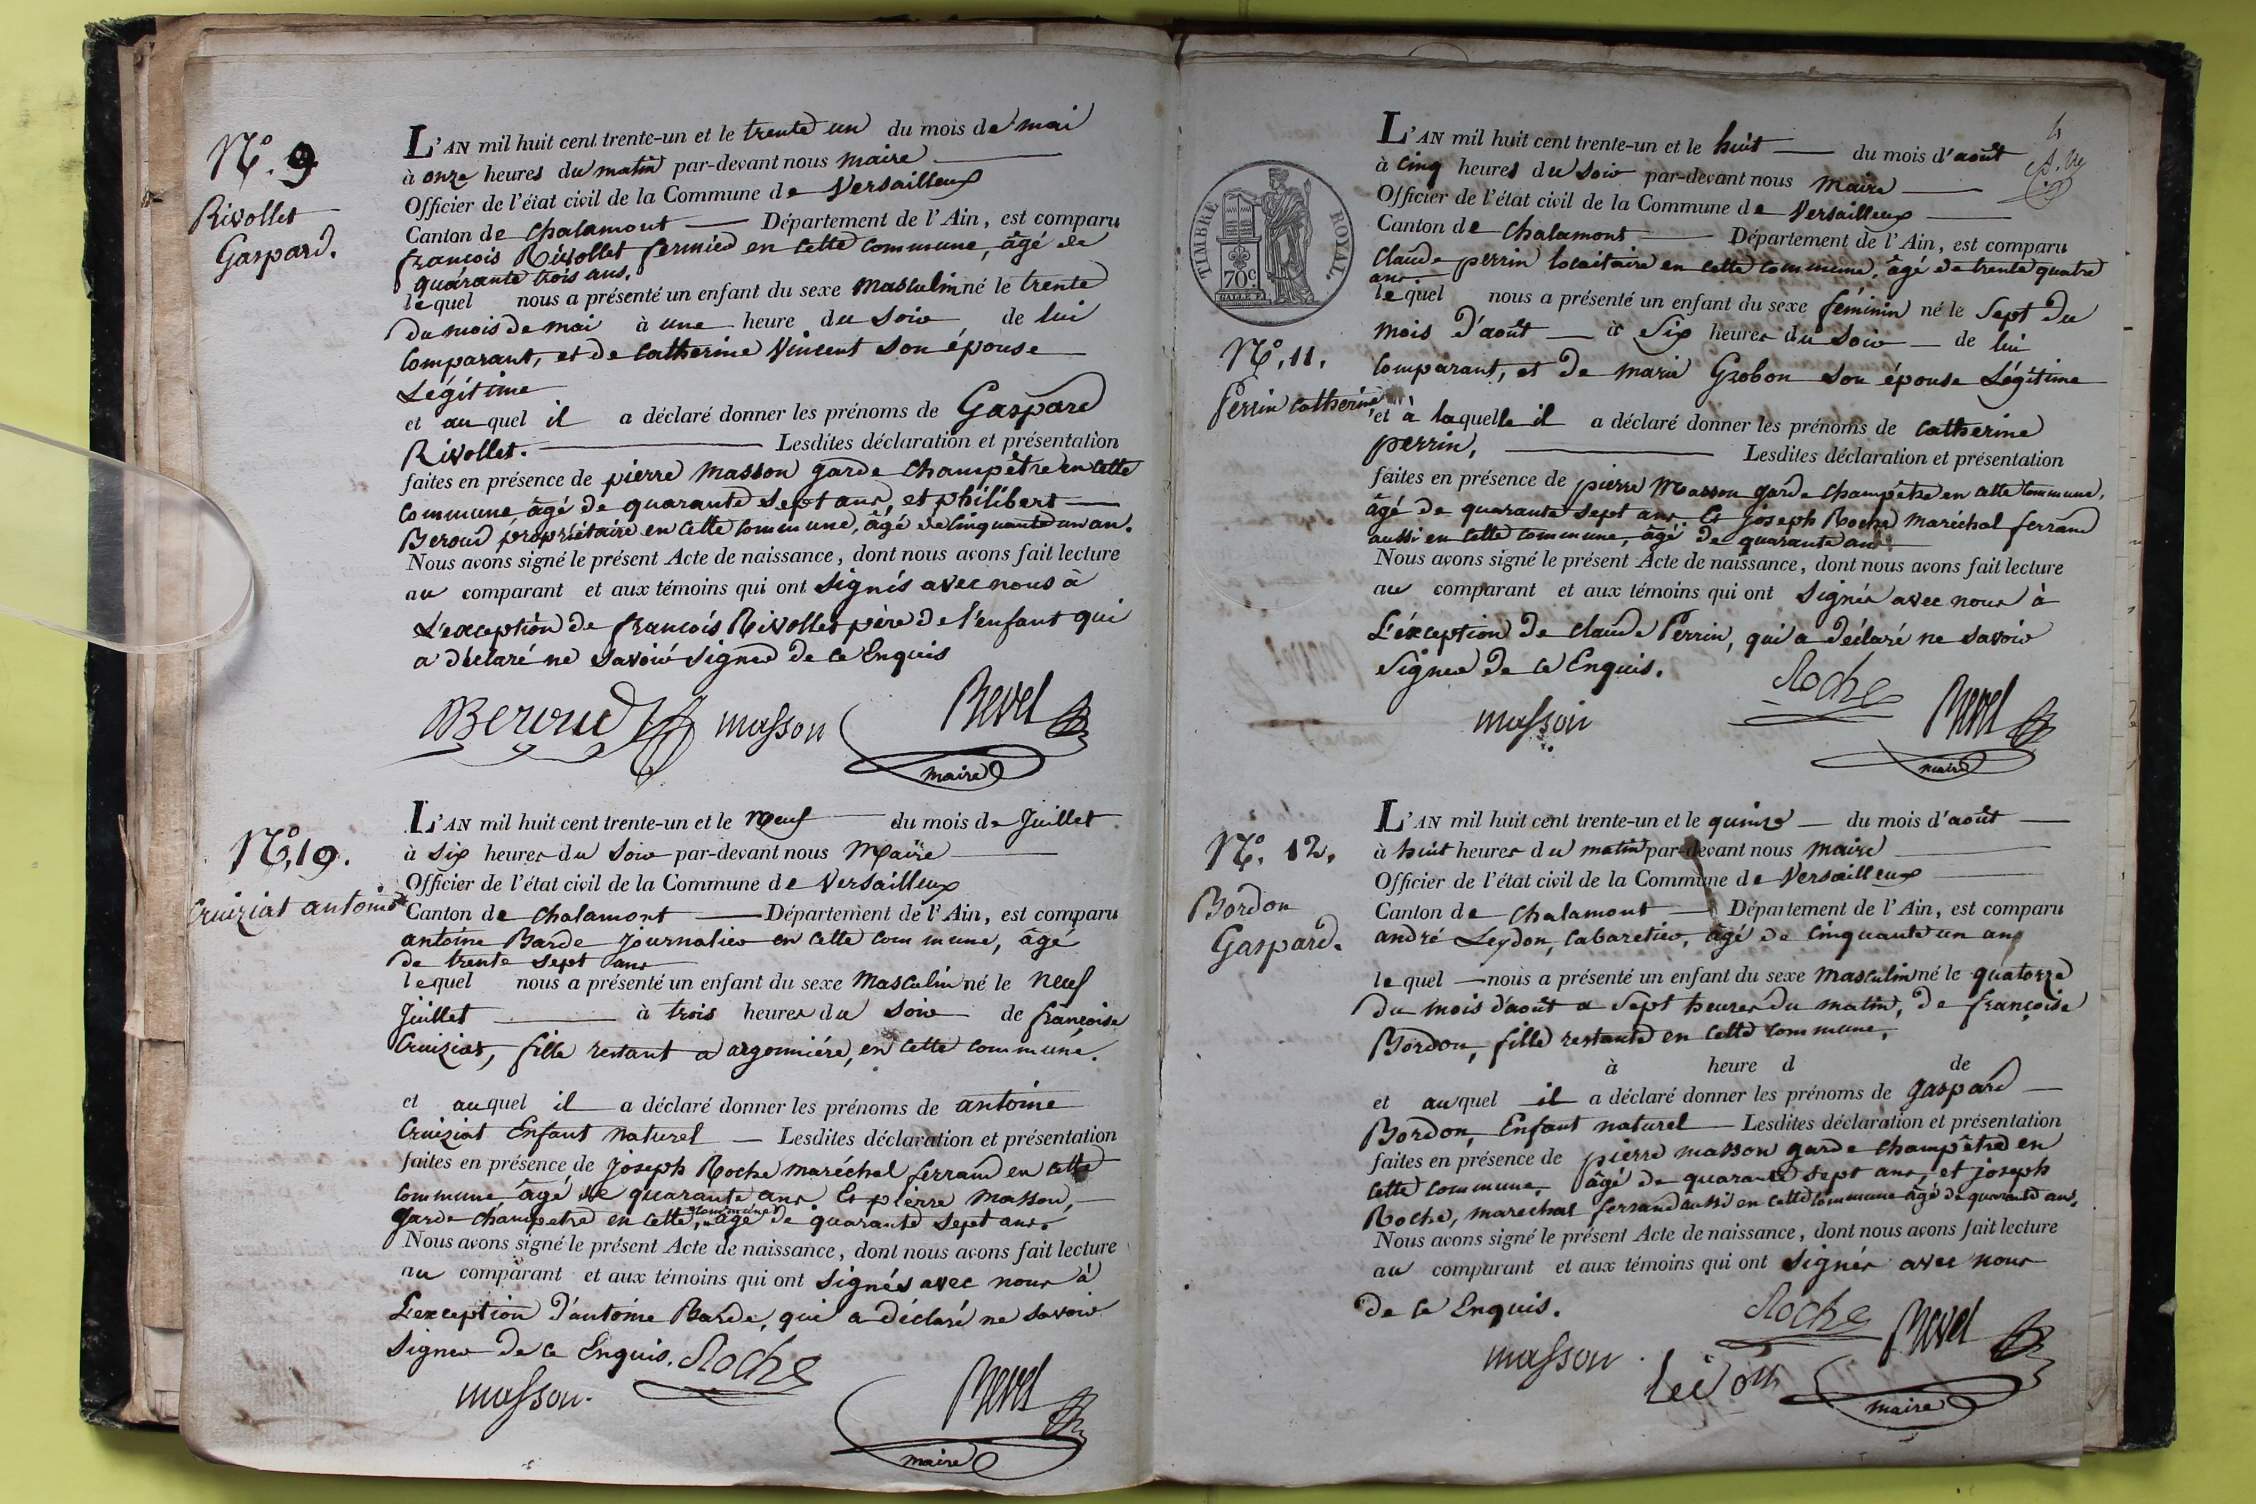 N.° 9
Rivollet
Gaspard.
L'AN mil huit cent trente-un et le trente un du mois de mai
à onze heures du matin par-devant nous maire
Officier de l'état civil de la Commune de Versailleux
Canton de Chalamont Département de l'Ain, est comparu
françois Rivollet fermier en cette commune, âgé de
quarante trois ans.
lequel nous a présenté un enfant du sexe masculin né le trente
du mois de mai à une heure du soir de lui
comparant, et de Catherine Vincent son épouse
Légitime
et auquel il a déclaré donner les prénoms de Gaspard
Rivollet. Lesdites déclaration et présentation
faites en présence de pierre Masson garde champêtre en cette
commune âgé de quarante sept ans, et philibert
Beroud propriétaire en cette commune, âgé de cinquante un an.
Nous avons signé le présent Acte de naissance, dont nous avons fait lecture
au comparant et aux témoins qui ont signés avec nous à
L'exception de françois Rivollet père de l'enfant qui
a déclaré ne savoir signer de ce Enquis
Beroud masson Revel
maire
N.° 10.
Cruiziat antoine
L'AN mil huit cent trente-un et le neuf du mois de Juillet
à six heures du soir par-devant nous Maire
Officier de l'état civil de la Commune de Versailleux
Canton de Chalamont Département de l'Ain, est comparu
antoine Barde journalier en cette commune, âgé
de trente sept ans
lequel nous a présenté un enfant du sexe masculin né le neuf
Juillet à trois heures du soir de françoise
Cruiziat, fille restant a argonniére, en cette commune.
et auquel il a déclaré donner les prénoms de antoine
Cruiziat Enfant naturel Lesdites déclaration et présentation
faites en présence de Joseph Roche maréchal ferrand en cette
commune âgé de quarante ans. Et pierre Masson,
garde champetre en cette commune, âgé de quarante sept ans.
Nous avons signé le présent Acte de naissance, dont nous avons fait lecture
au comparant et aux témoins qui ont signés avec nous à
L'exception d'antoine Barde, qui a déclaré ne savoir
signer de ce Enquis. Roche
masson. Revel
maire
TIMBRE ROYAL.
70 c.
N.° 11.
Perrin Catherine
L'AN mil huit cent trente-un et le huit du mois d'août
à cinq heures du soir par-devant nous Maire
Officier de l'état civil de la Commune de Versailleux
Canton de Chalamont Département de l'Ain, est comparu
Claude perrin locataire en cette commune, âgé de trente quatre
ans
lequel nous a présenté un enfant du sexe féminin né le sept du
mois d'août à six heures du soir de lui
comparant, et de marie Grobon son épouse Légitime
et à laquelle il a déclaré donner les prénoms de Catherine
perrin, Lesdites déclaration et présentation
faites en présence de pierre Masson garde champêtre en cette commune,
âgé de quarante sept ans. Et joseph Roche maréchal ferrand
aussi en cette commune, âgé de quarante ans.
Nous avons signé le présent Acte de naissance, dont nous avons fait lecture
au comparant et aux témoins qui ont signés avec nous à
L'éxception de claude Perrin, qui a déclaré ne savoir
signer de ce Enquis. Roche
masson Revel
maire
N.° 12.
Bordon
Gaspard.
L'AN mil huit cent trente-un et le quinze du mois d'août
à huit heures du matin par-devant nous maire
Officier de l'état civil de la Commune de Versailleux
Canton de Chalamont Département de l'Ain, est comparu
andré Leydon, cabaretier, âgé de cinquante un ans
lequel nous a présenté un enfant du sexe masculin né le quatorze
du mois d'août a sept heures du matin, de françoise
Bordon, fille restante en cette commune,
à heure d de
et auquel il a déclaré donner les prénoms de gaspard
Bordon, Enfant naturel Lesdites déclaration et présentation
faites en présence de pierre masson garde champêtre en
cette commune, âgé de quarante sept ans, et joseph
Roche, marechal ferrand aussi en cette commune âgé de quarante ans.
Nous avons signé le présent Acte de naissance, dont nous avons fait lecture
au comparant et aux témoins qui ont signés avec nous
de ce Enquis. Roche
masson Revel
maire